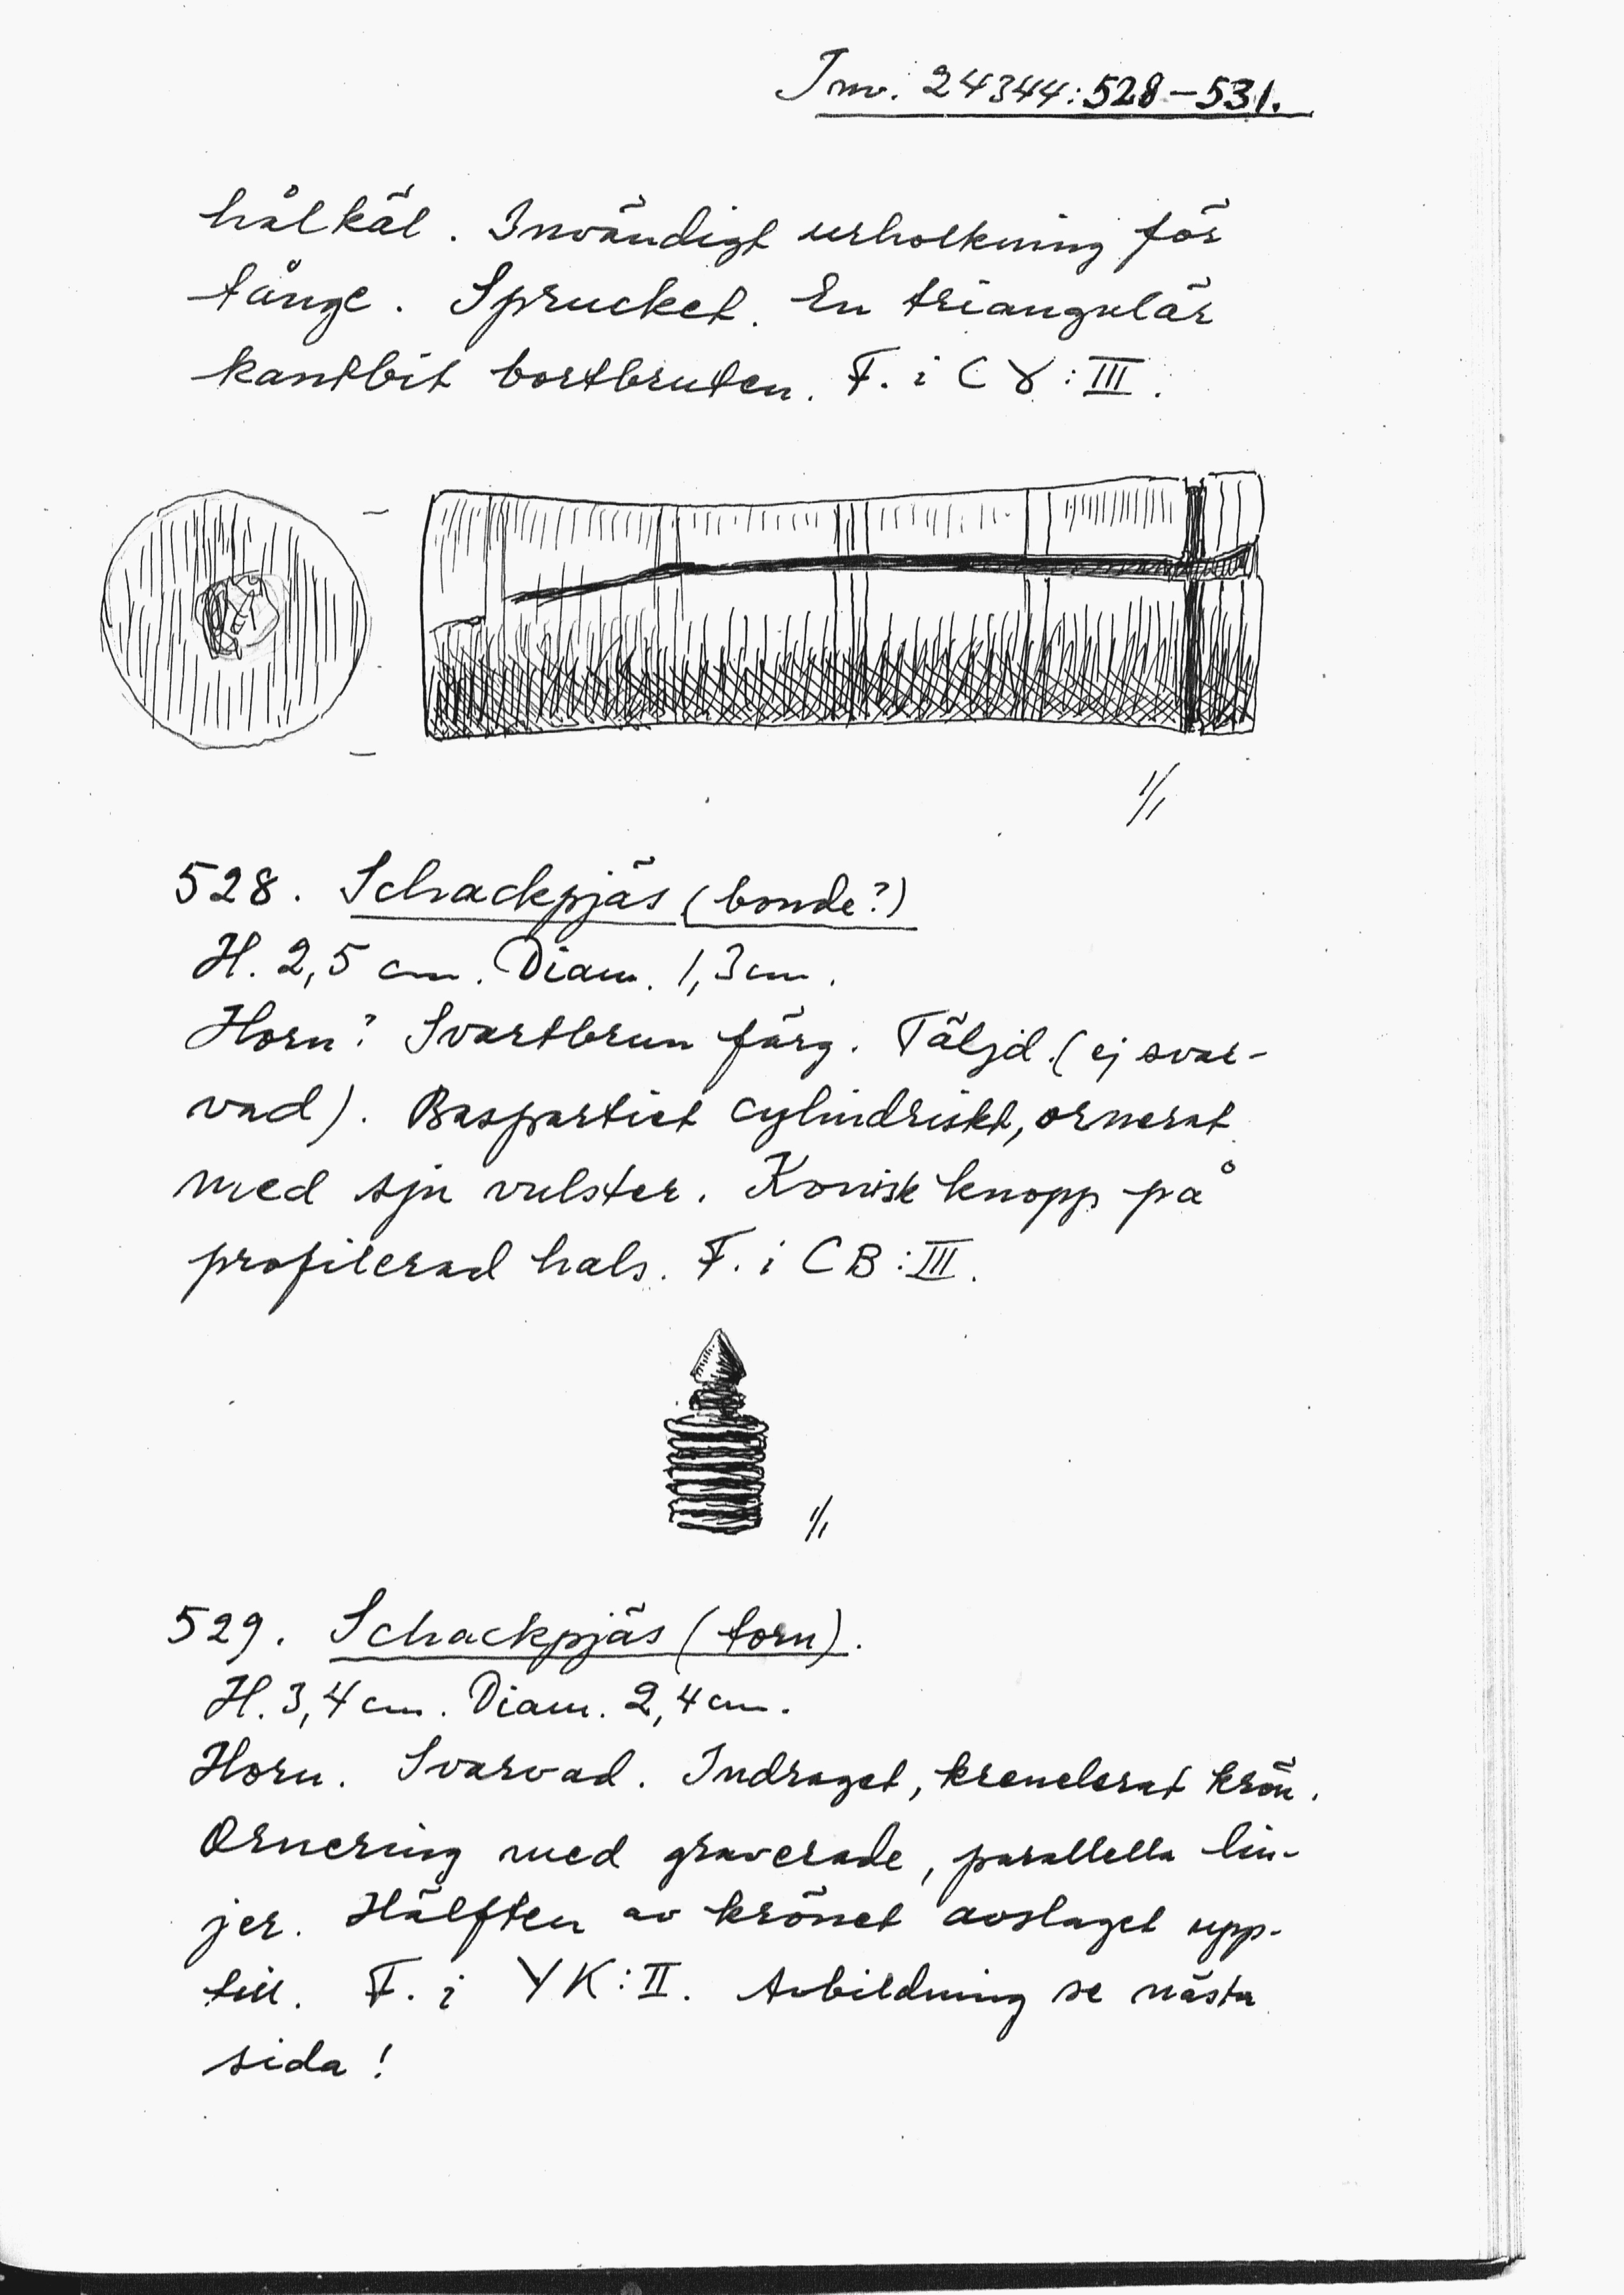 Inv. 24344:528–531.
hålkäl. Invändigt urholkning för
tånge. Sprucket. En triangulär
kantbit bortbruten. F. i CY:III.
1/1
528. Schackpjäs (bonde?)
H. 2,5 cm. Diam. 1,3 cm.
Horn? Svartbrun färg. Täljd. (ej svar-
vad). Baspartiet cylindriskt, ornerat
med sju vulster. Konisk knopp på
profilerad hals. F. i CB:III.
1/1
529. Schackpjäs (torn).
H. 3,4 cm. Diam. 2,4 cm.
Horn. Svarvad. Indraget, krenelerat krön.
Ornering med graverade, parallella lin-
jer. Hälften av krönet avslaget upp-
till. F. i YK:II. Avbildning se nästa
sida!